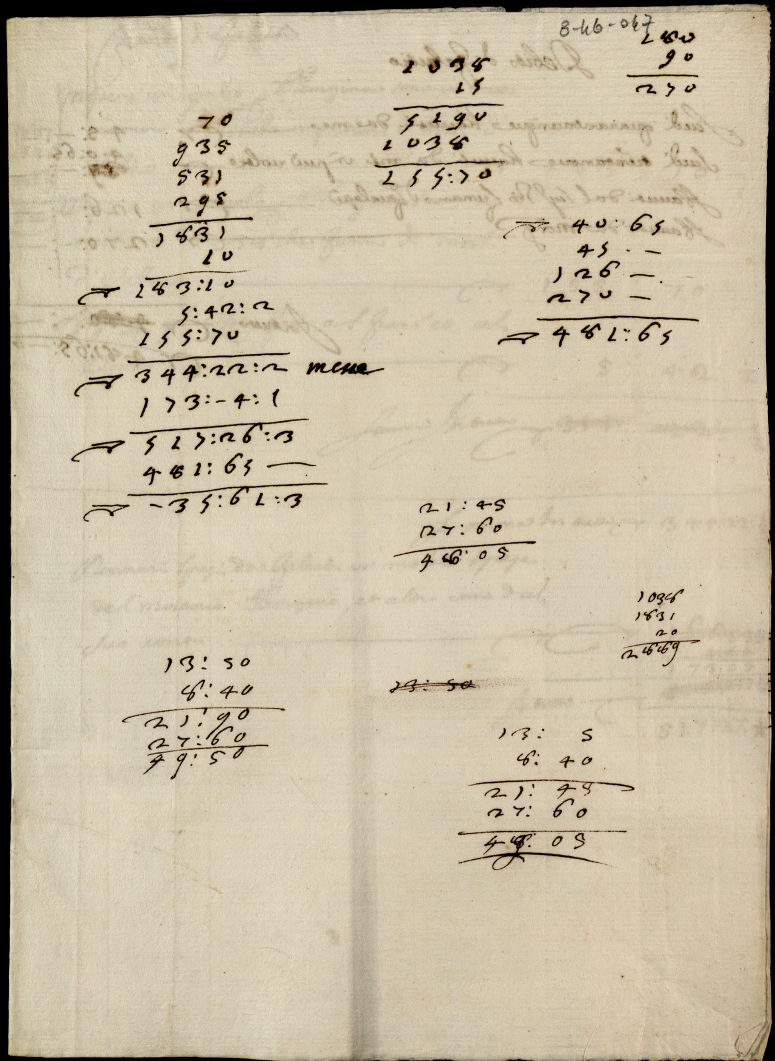 8-46-047
180
90
270
1038
15
5190
1038
155:70
70
935
531
295
1831
10
183:10
5:42:2
155:70
344:22:2
173:-4:1
517:26:3
481:65 —
-35:61:3
40:65
45 . —
126 —
270 —
481:65
21:45
27:60
48:05
1038
1831
20
2889
13:50
8:40
21:90
27:60
49:50
13:50
13: 5
8:40
21:45
27:60
49:05